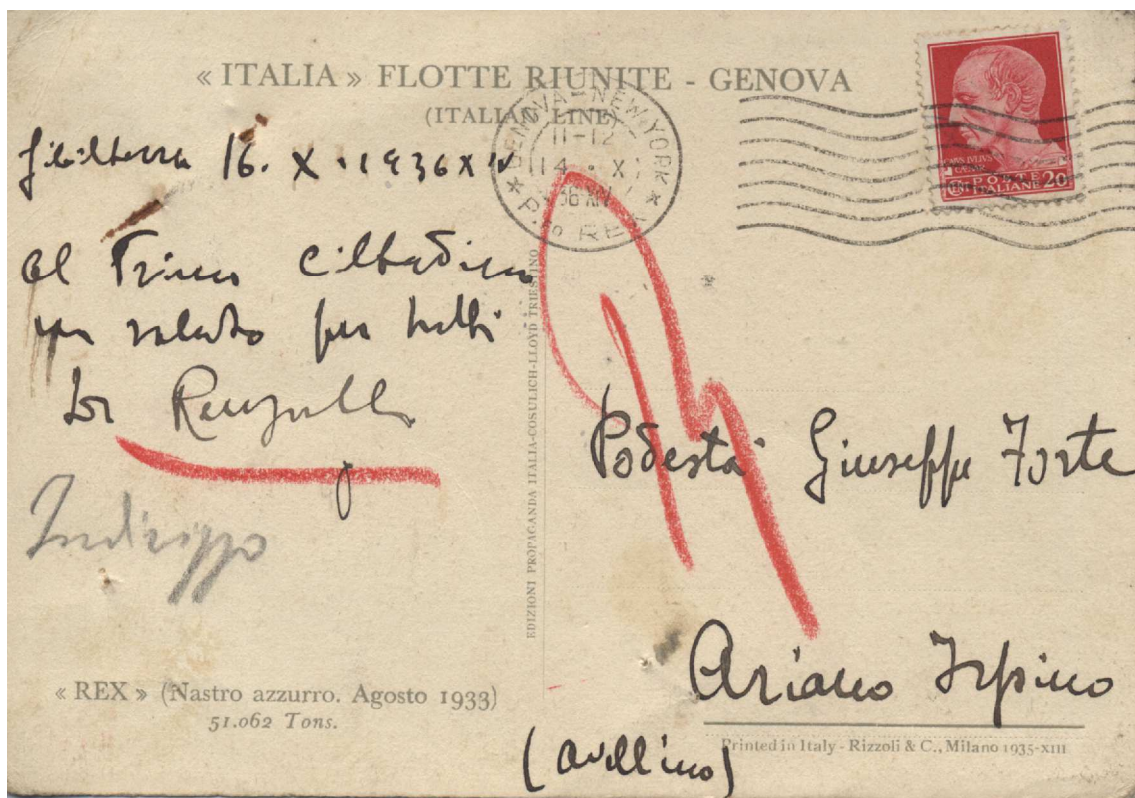 « ITALIA » FLOTTE RIUNITE - GENOVA
(ITALIAN LINE)
GENOVA-NEW YORK
11-12
X
P.fo REX
CAIVS IVLIVS
CAESAR
POSTE
ITALIANE 20
Gibilterra 16. X. 1936 XIV
Al Primo Cittadino
un saluto per tutti
Indirizzo
EDIZIONI PROPAGANDA ITALIA-COSULICH-LLOYD TRIESTINO
Podestà Giuseppe Forte
Ariano Irpino
(Avellino)
« REX » (Nastro azzurro. Agosto 1933)
51.062 Tons.
Printed in Italy - Rizzoli & C., Milano 1935-XIII